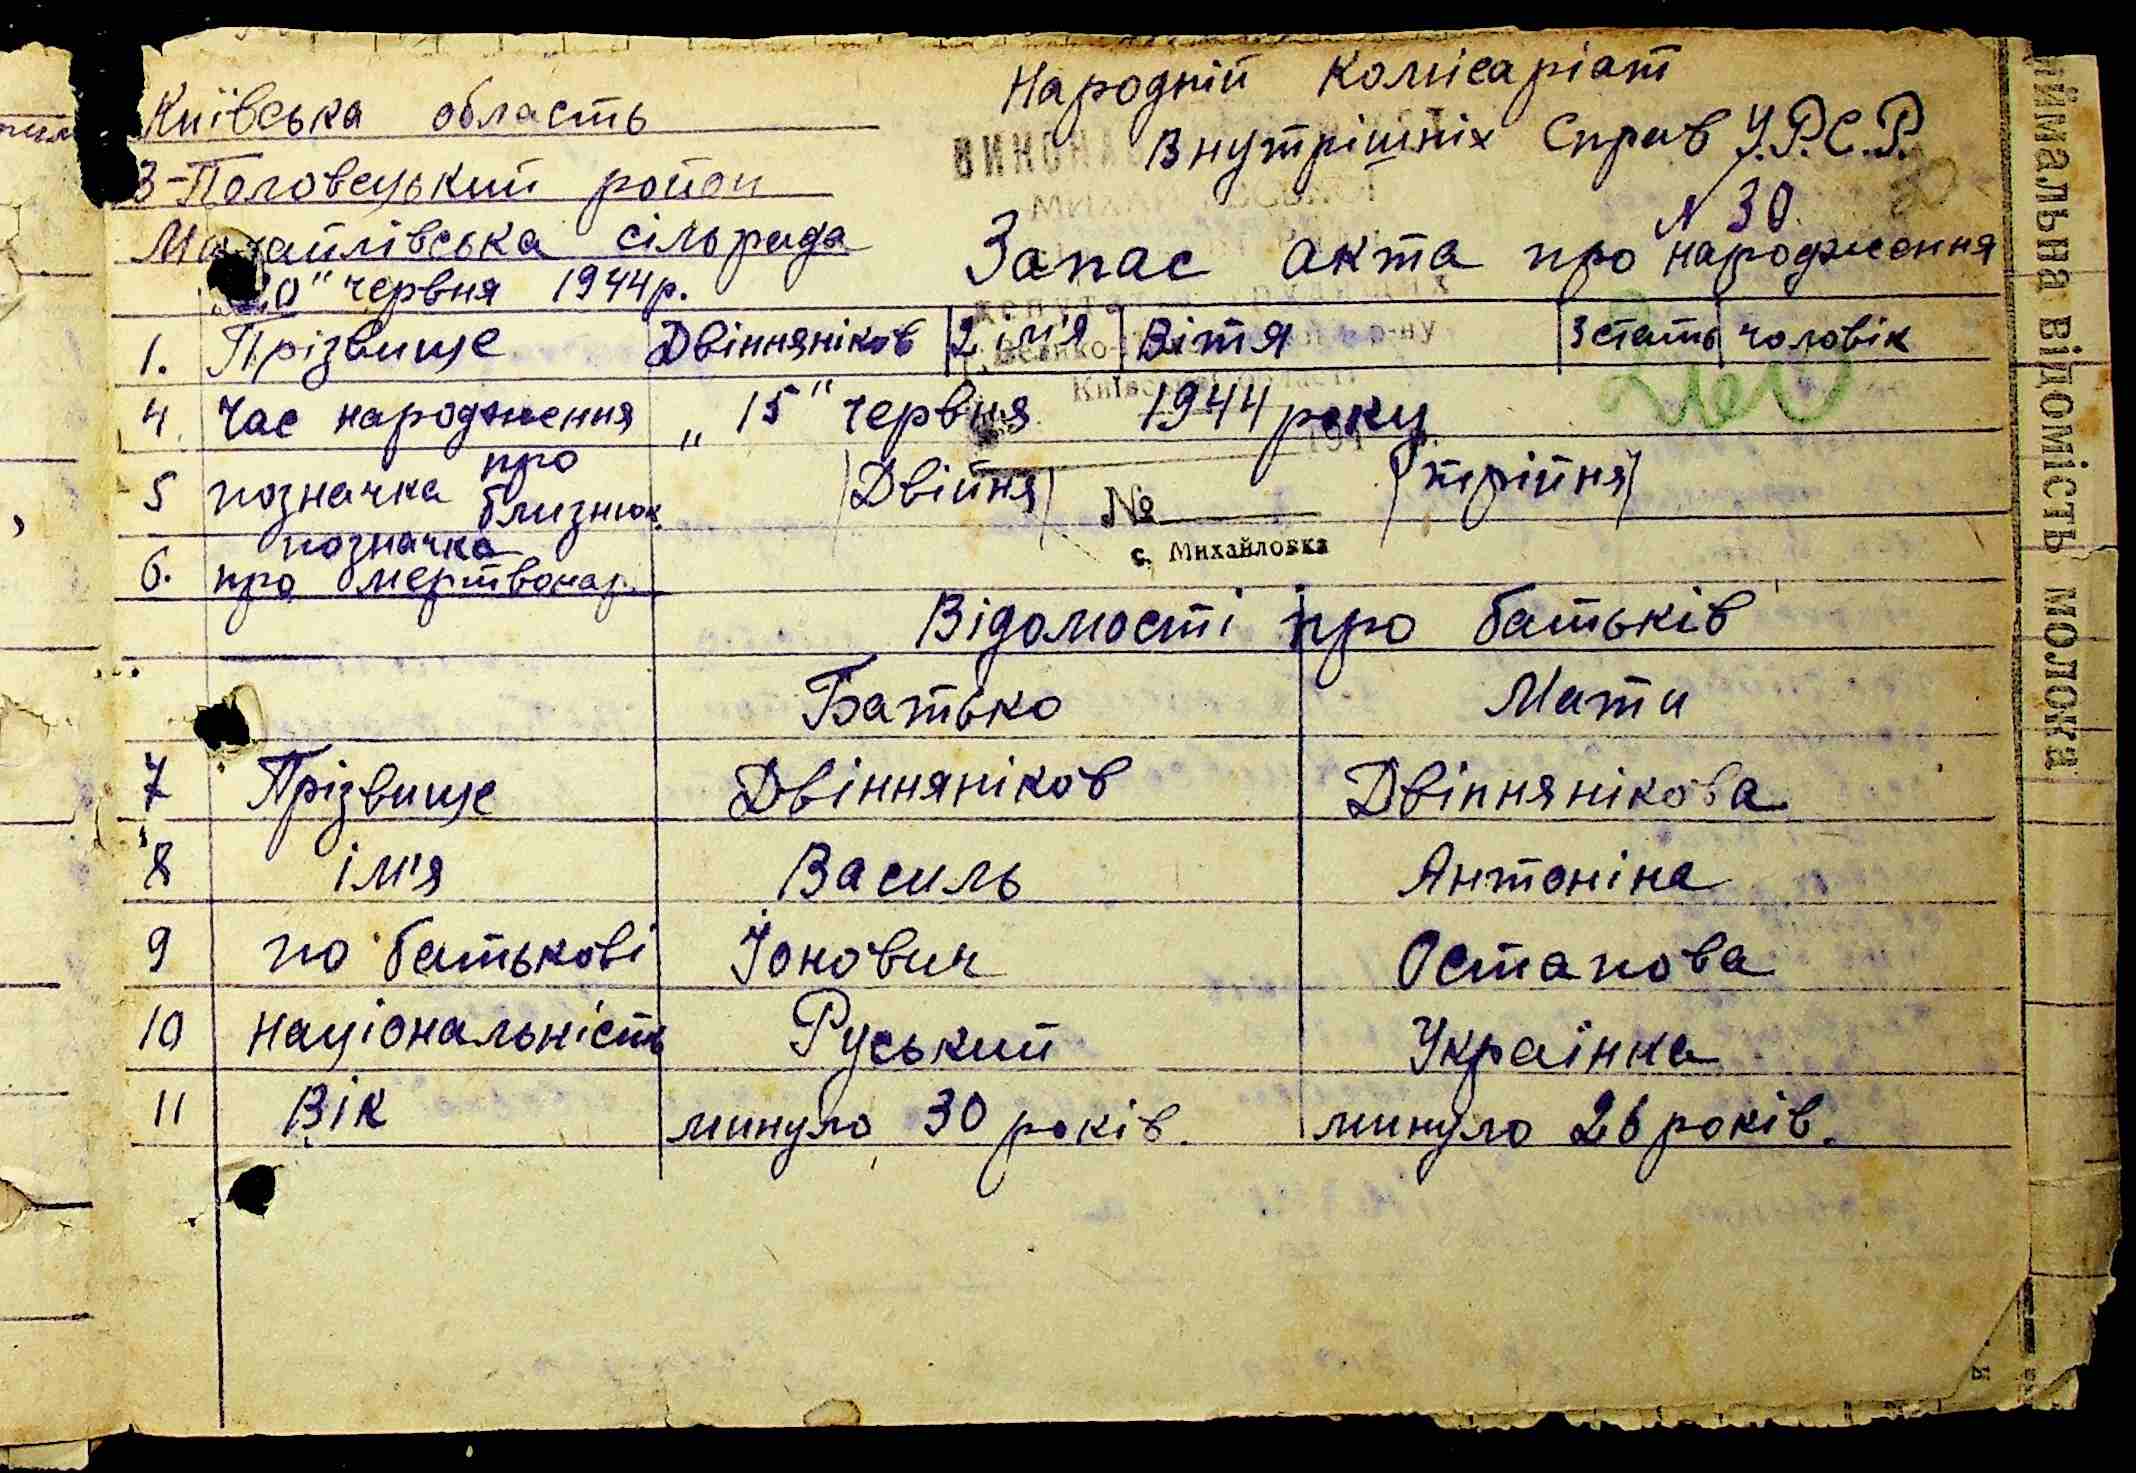 Київська область
З-Половецький район
Михайлівська сільрада
„20" червня 1944 р.
Народній Комісаріат
Внутрішніх Справ У.Р.С.Р.
N 30
Запас акта про народження
1. Прізвище Двінняніков 2 ім'я Вітя 3 стать чоловік
4 Час народження „15" червня 1944 року
5 позначка про близнюк. (Двійня) (трійня)
№
с. Михайловка
6. позначка про мертвонар.
Відомості про батьків
Батько Мати
7 Прізвище Двінняніков Двіннянікова
8 ім'я Василь Антоніна
9 по батькові Йонович Остапова
10 Національність Руський Українка
11 Вік минуло 30 років. минуло 26 років.
ймальна відомість молока